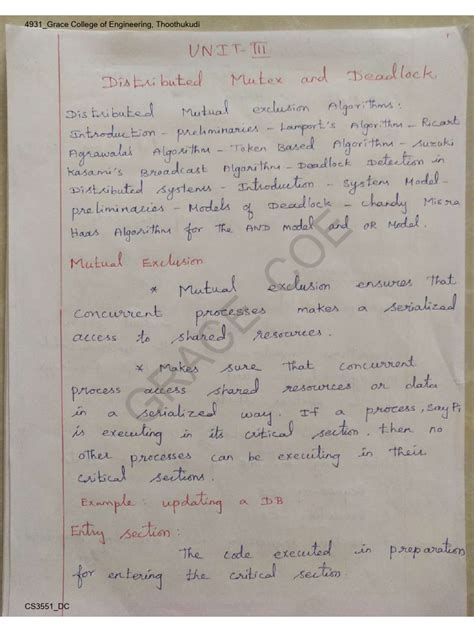 4931_Grace College of Engineering, Thoothukudi
UNIT-III
Distributed Mutex and Deadlock
Distributed Mutual exclusion Algorithms:
Introduction - preliminaries - Lamport's Algorithm - Ricart
Agrawala's Algorithm - Token Based Algorithm - Suzuki
Kasami's Broadcast Algorithm - Deadlock Detection in
Distributed systems - Introduction - System Model -
preliminaries - Models of Deadlock - Chandy Misra
Haas Algorithm for the AND model and OR Model.
Mutual Exclusion
* Mutual exclusion ensures that
concurrent processes makes a serialized
access to shared resources.
* Makes sure that concurrent
process access shared resources or data
in a serialized way. If a process, say Pi
is executing in its critical section, then no
other processes can be executing in their
critical sections.
Example: updating a DB
Entry section:
The code executed in preparation
for entering the critical section.
GRACE COE
CS3551_DC